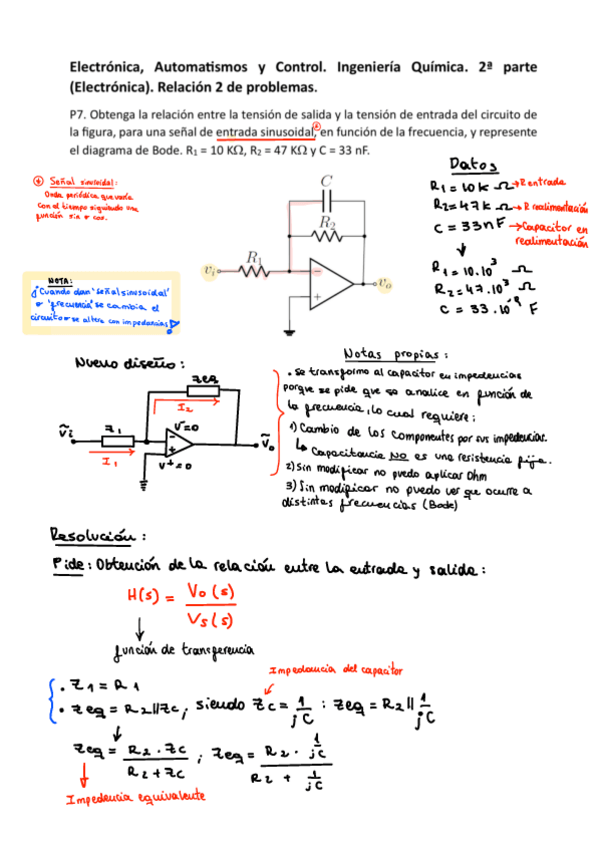 Electrónica, Automatismos y Control. Ingeniería Química. 2ª parte
(Electrónica). Relación 2 de problemas.
P7. Obtenga la relación entre la tensión de salida y la tensión de entrada del circuito de
la figura, para una señal de entrada sinusoidal, en función de la frecuencia, y represente
el diagrama de Bode. R₁ = 10 KΩ, R₂ = 47 KΩ y C = 33 nF.
Datos
R1 = 10k Ω → R entrada
R2 = 47k Ω → R realimentación
C = 33nF → Capacitor en
realimentación
R1 = 10·10³ Ω
R2 = 47·10³ Ω
C = 33·10⁻⁹ F
Señal sinusoidal:
Onda periódica que varía
con el tiempo siguiendo una
función sin o cos.
C
R₂
R₁
vᵢ
vₒ
−
+
NOTA:
¡Cuando dan "señal sinusoidal"
o "frecuencia" se cambia el
circuito → se altera con impedancias!
Nuevo diseño:
Zeq
I2
Ṽi
Z1
V⁻=0
Ṽo
I1
V⁺=0
Notas propias:
• Se transforma al capacitor en impedancias
porque se pide que se analice en función de
la frecuencia, lo cual requiere:
1) Cambio de los componentes por sus impedancias.
↳ Capacitancia NO es una resistencia fija.
2) Sin modificar no puedo aplicar Ohm
3) Sin modificar no puedo ver que ocurre a
distintas frecuencias (Bode)
Resolución:
Pide: Obtención de la relación entre la entrada y salida:
H(s) = Vo(s) / Vs(s)
función de transferencia
Impedancia del capacitor
• Z1 = R1
• Zeq = R2||Zc, siendo Zc = 1/jC : Zeq = R2 || 1/jC
Zeq = R2 · Zc / R2 + Zc ; Zeq = R2 · 1/jC / R2 + 1/jC
Impedancia equivalente